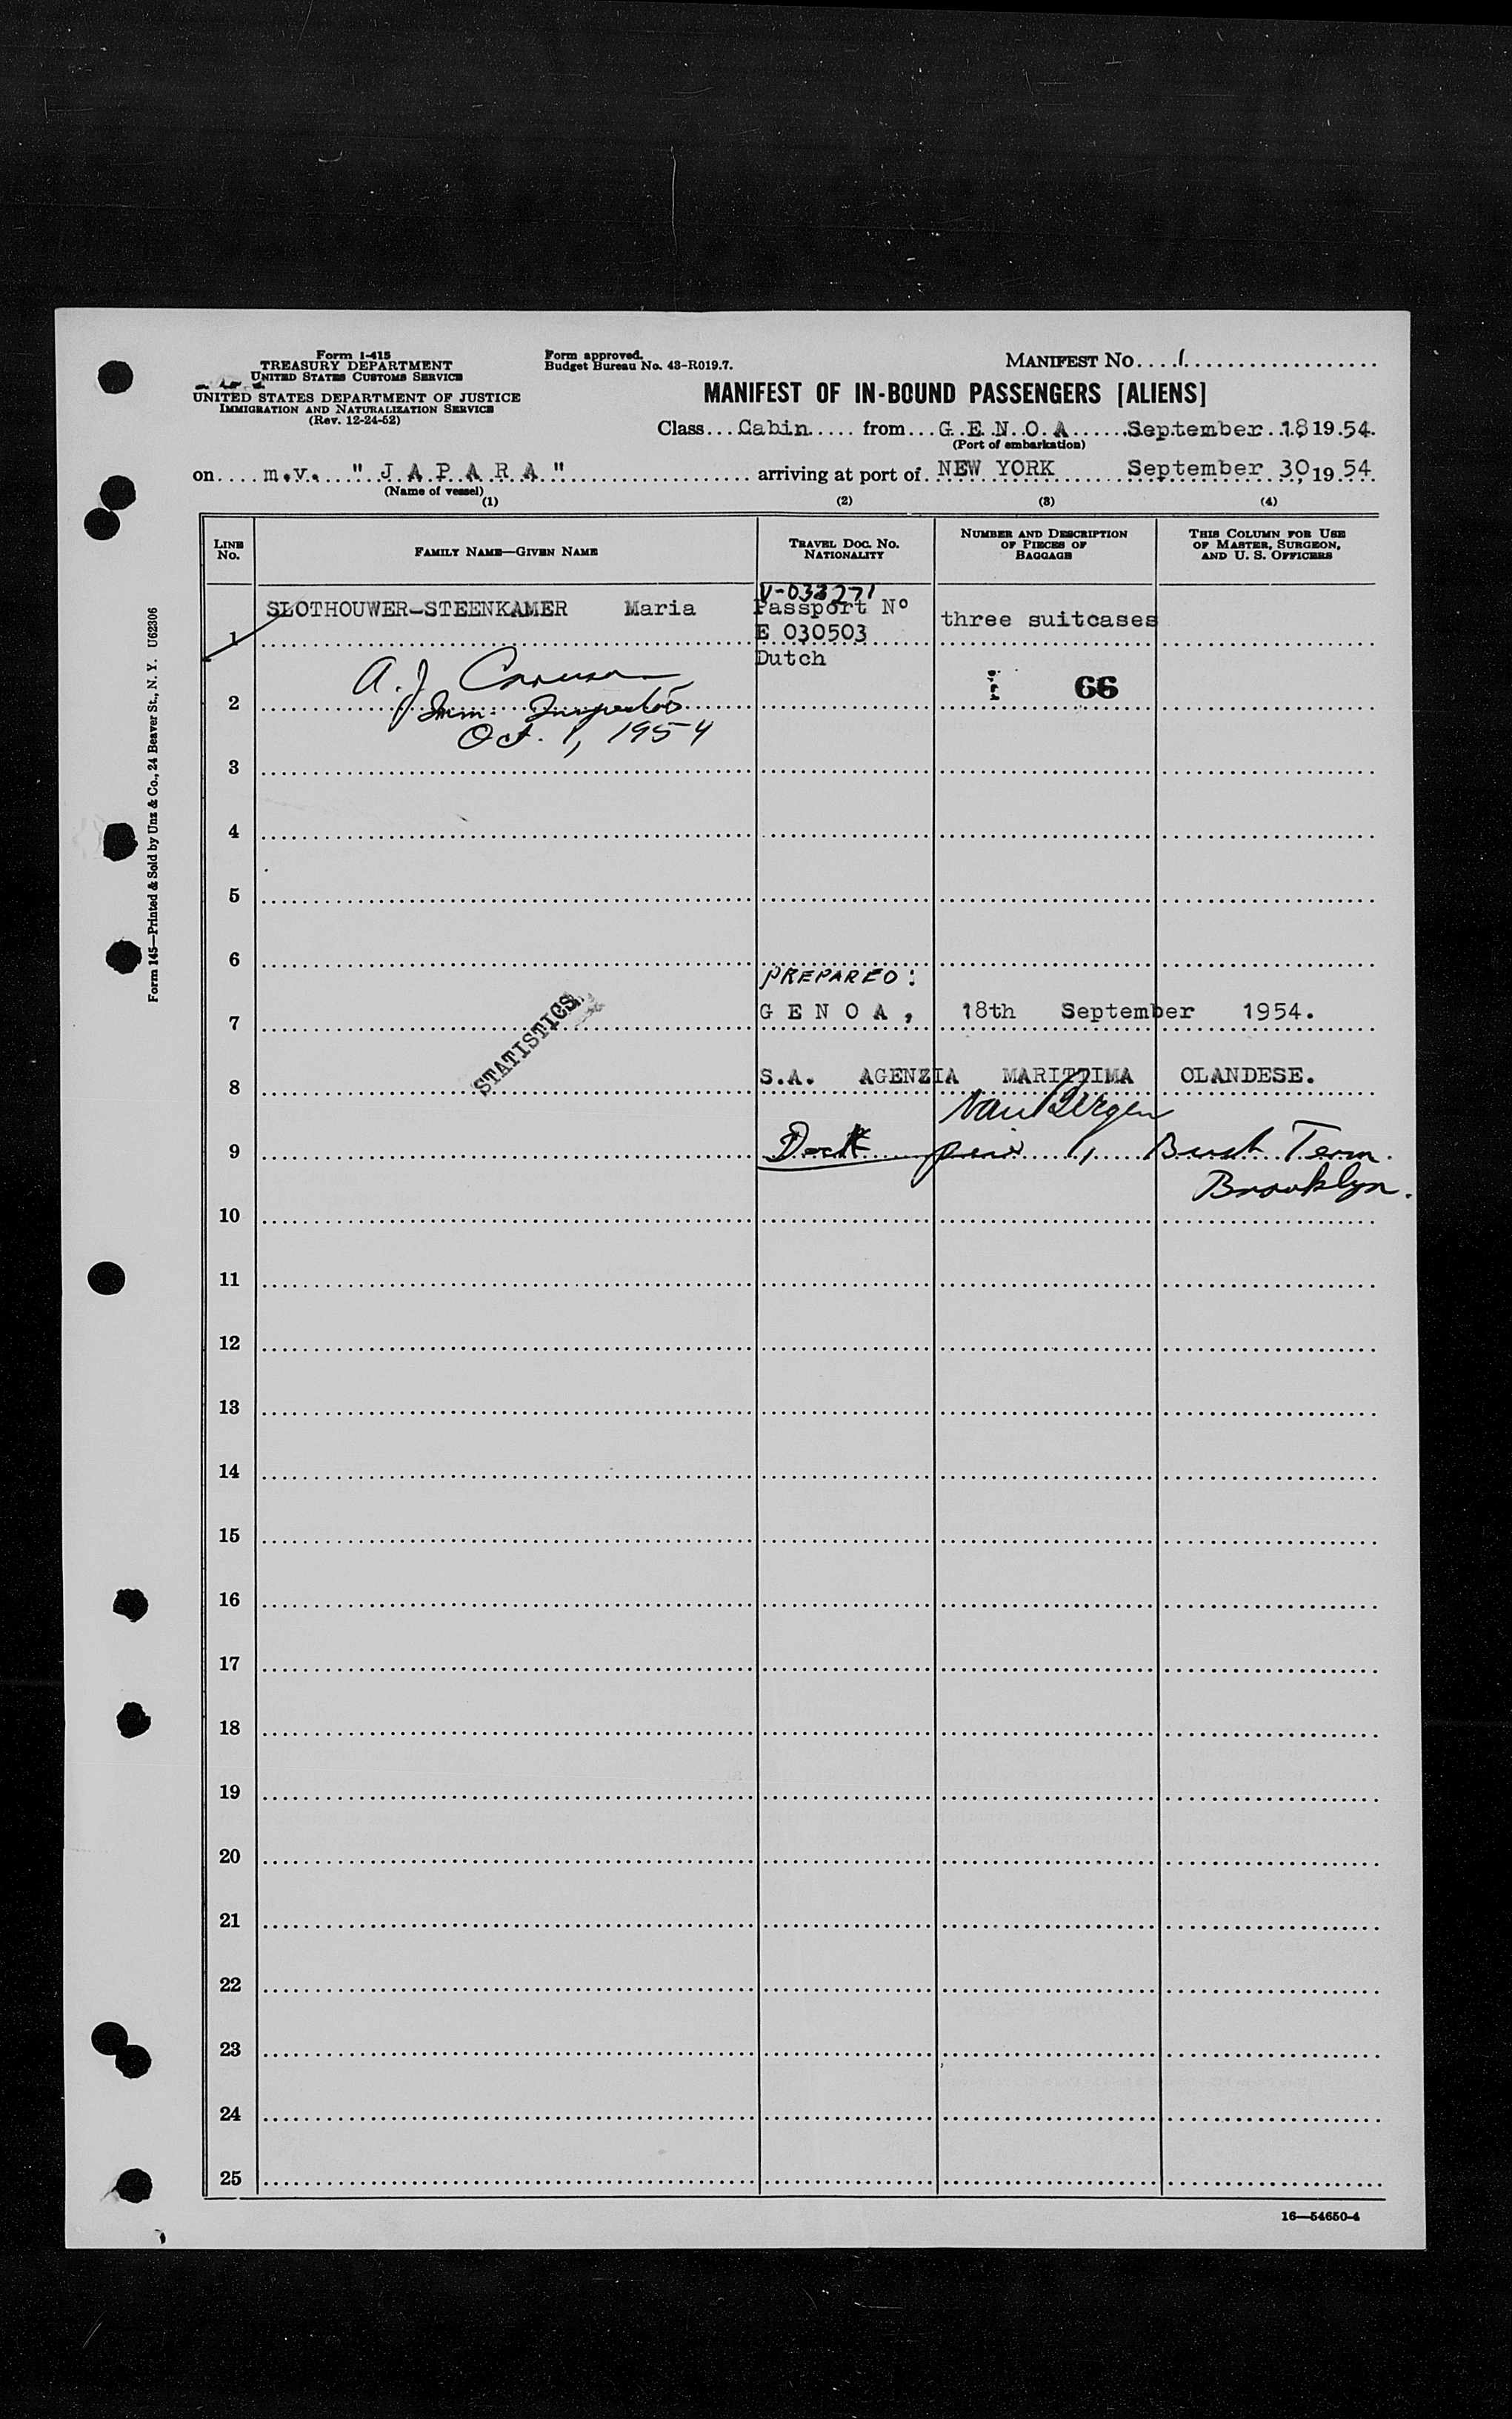 Form I-415
TREASURY DEPARTMENT
UNITED STATES CUSTOMS SERVICE
UNITED STATES DEPARTMENT OF JUSTICE
IMMIGRATION AND NATURALIZATION SERVICE
(Rev. 12-24-52)
Form approved.
Budget Bureau No. 43-R019.7.
MANIFEST NO. 1
MANIFEST OF IN-BOUND PASSENGERS [ALIENS]
Class Cabin from G E N O A September 18 1954.
(Port of embarkation)
on m.v. "J A P A R A" arriving at port of NEW YORK September 30, 1954
(Name of vessel)
(1) (2) (3) (4)
LINE NO.
FAMILY NAME—GIVEN NAME
TRAVEL DOC. NO.
NATIONALITY
NUMBER AND DESCRIPTION
OF PIECES OF
BAGGAGE
THIS COLUMN FOR USE
OF MASTER, SURGEON,
AND U. S. OFFICERS
V-033271
1 SLOTHOUWER-STEENKAMER Maria Passport Nº three suitcases
E 030503
Dutch
A. J.
66
2 Imm. Inspector
Oct. 1, 1954
3
4
5
6
PREPARED:
7 G E N O A, 18th September 1954.
STATISTICS
8 S.A. AGENZIA MARITTIMA OLANDESE.
Van Bergen
9 Dock pier 1, Bush Term.
Brooklyn.
10
11
12
13
14
15
16
17
18
19
20
21
22
23
24
25
16—54650-4
Form 145—Printed & Sold by Unz & Co., 24 Beaver St., N. Y. U62306